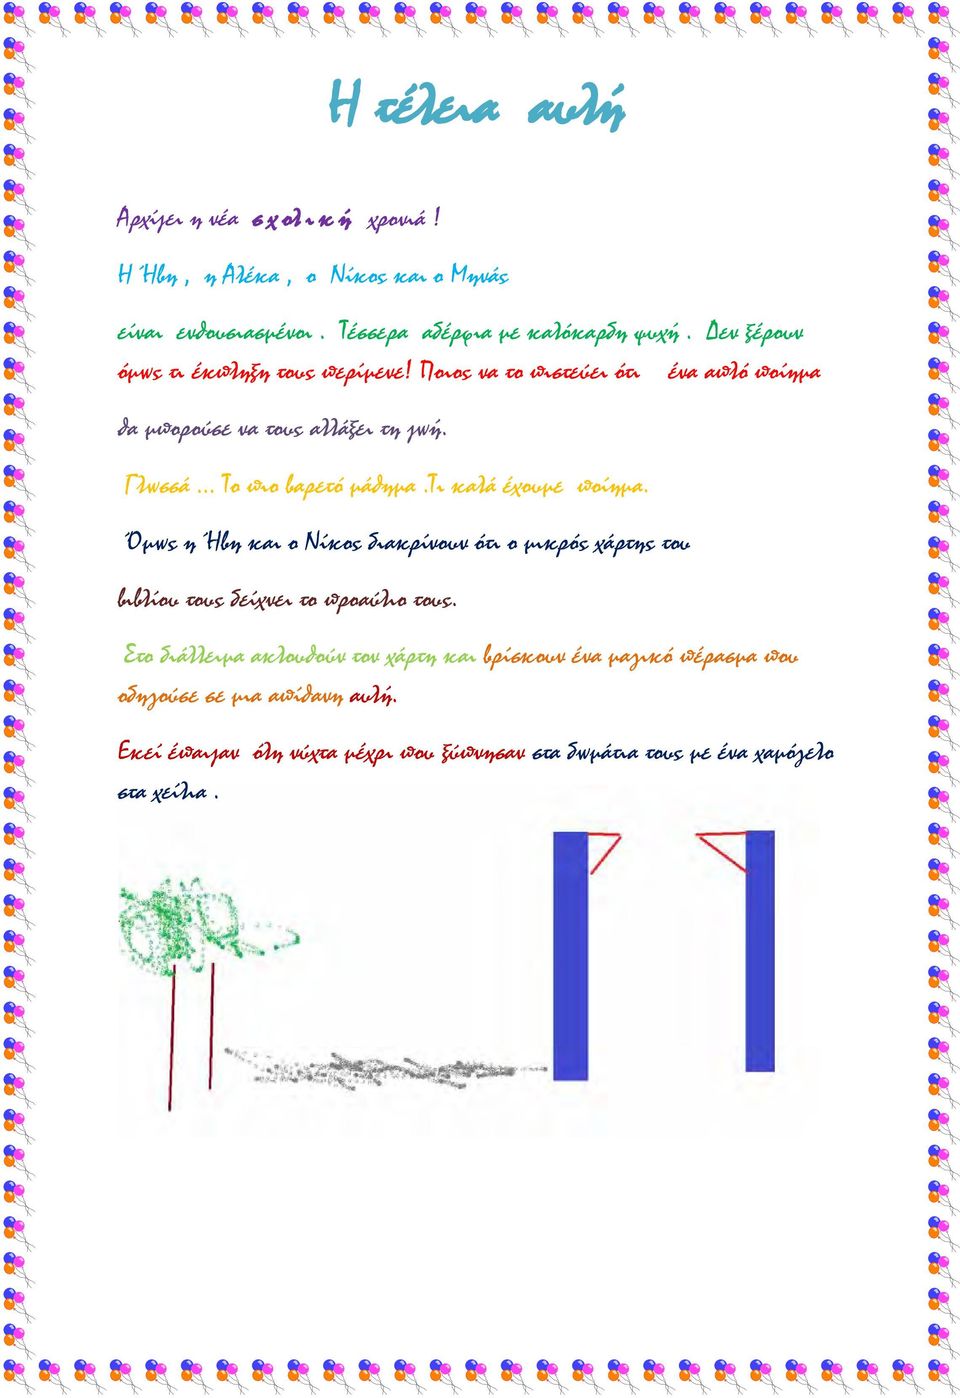 Η τέλεια αυλή
Αρχίζει η νέα σχολική χρονιά !
Η Ήβη , η Αλέκα , ο Νίκος και ο Μηνάς
είναι ενθουσιασμένοι . Τέσσερα αδέρφια με καλόκαρδη ψυχή . Δεν ξέρουν
όμως τι έκπληξη τους περίμενε! Ποιος να το πιστεύει ότι ένα απλό ποίημα
θα μπορούσε να τους αλλάξει τη ζωή.
Γλωσσά ... Το πιο βαρετό μάθημα .Τι καλά έχουμε ποίημα.
Όμως η Ήβη και ο Νίκος διακρίνουν ότι ο μικρός χάρτης του
βιβλίου τους δείχνει το προαύλιο τους.
Στο διάλλειμα ακλουθούν τον χάρτη και βρίσκουν ένα μαγικό πέρασμα που
οδηγούσε σε μια απίθανη αυλή.
Εκεί έπαιζαν όλη νύχτα μέχρι που ξύπνησαν στα δωμάτια τους με ένα χαμόγελο
στα χείλια .